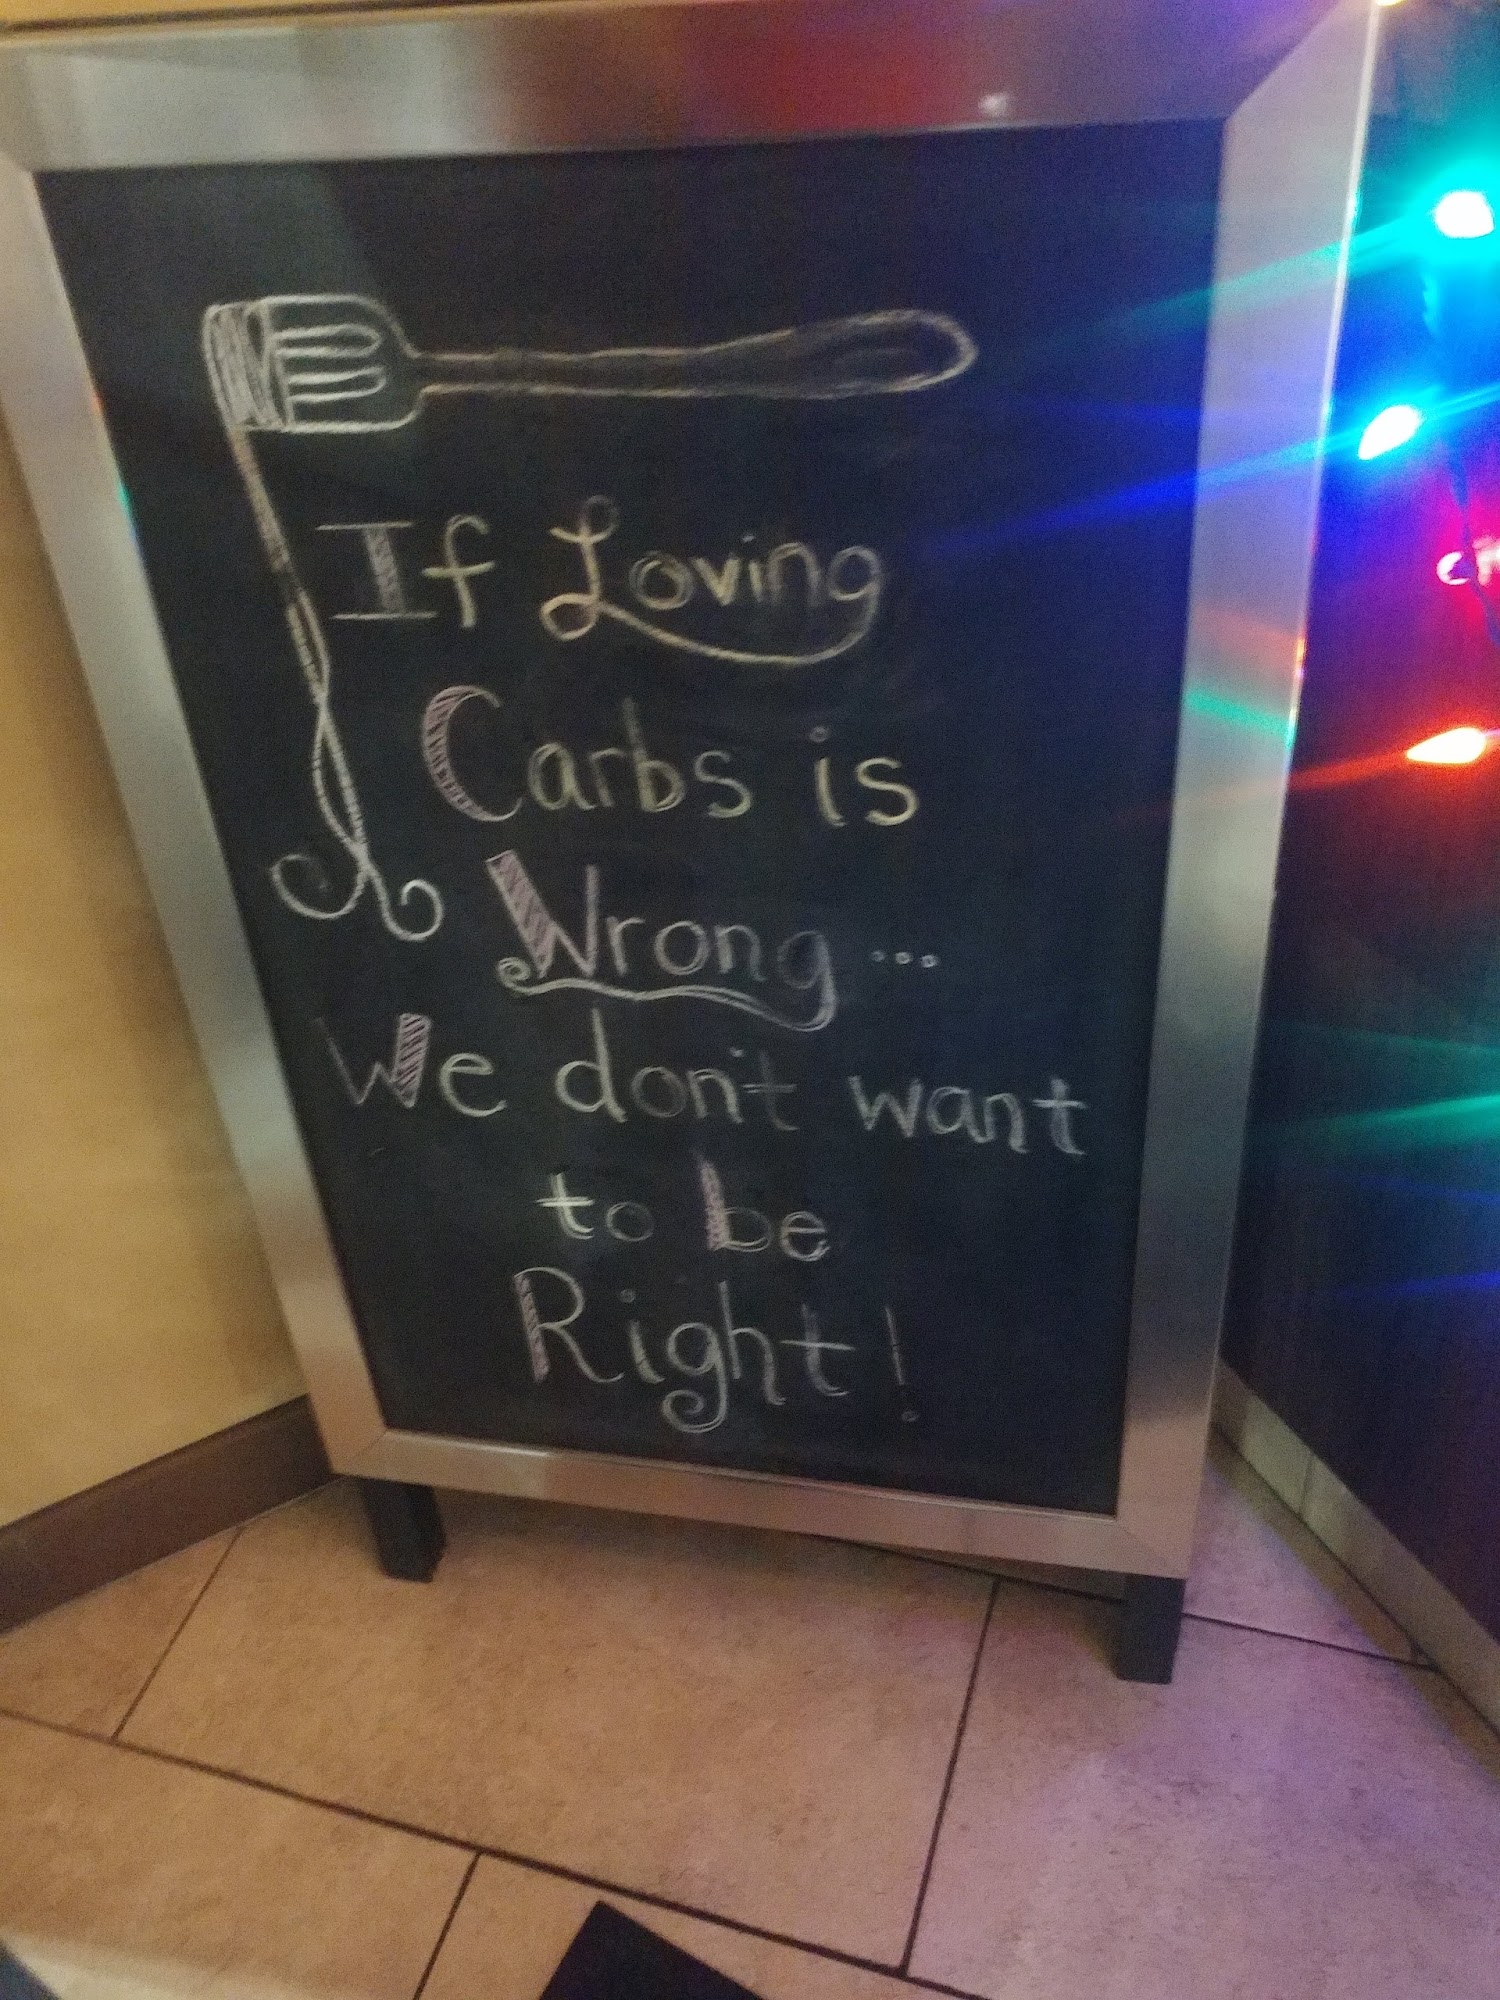 If Loving
Carbs is
Wrong...
We don't want
to be
Right!